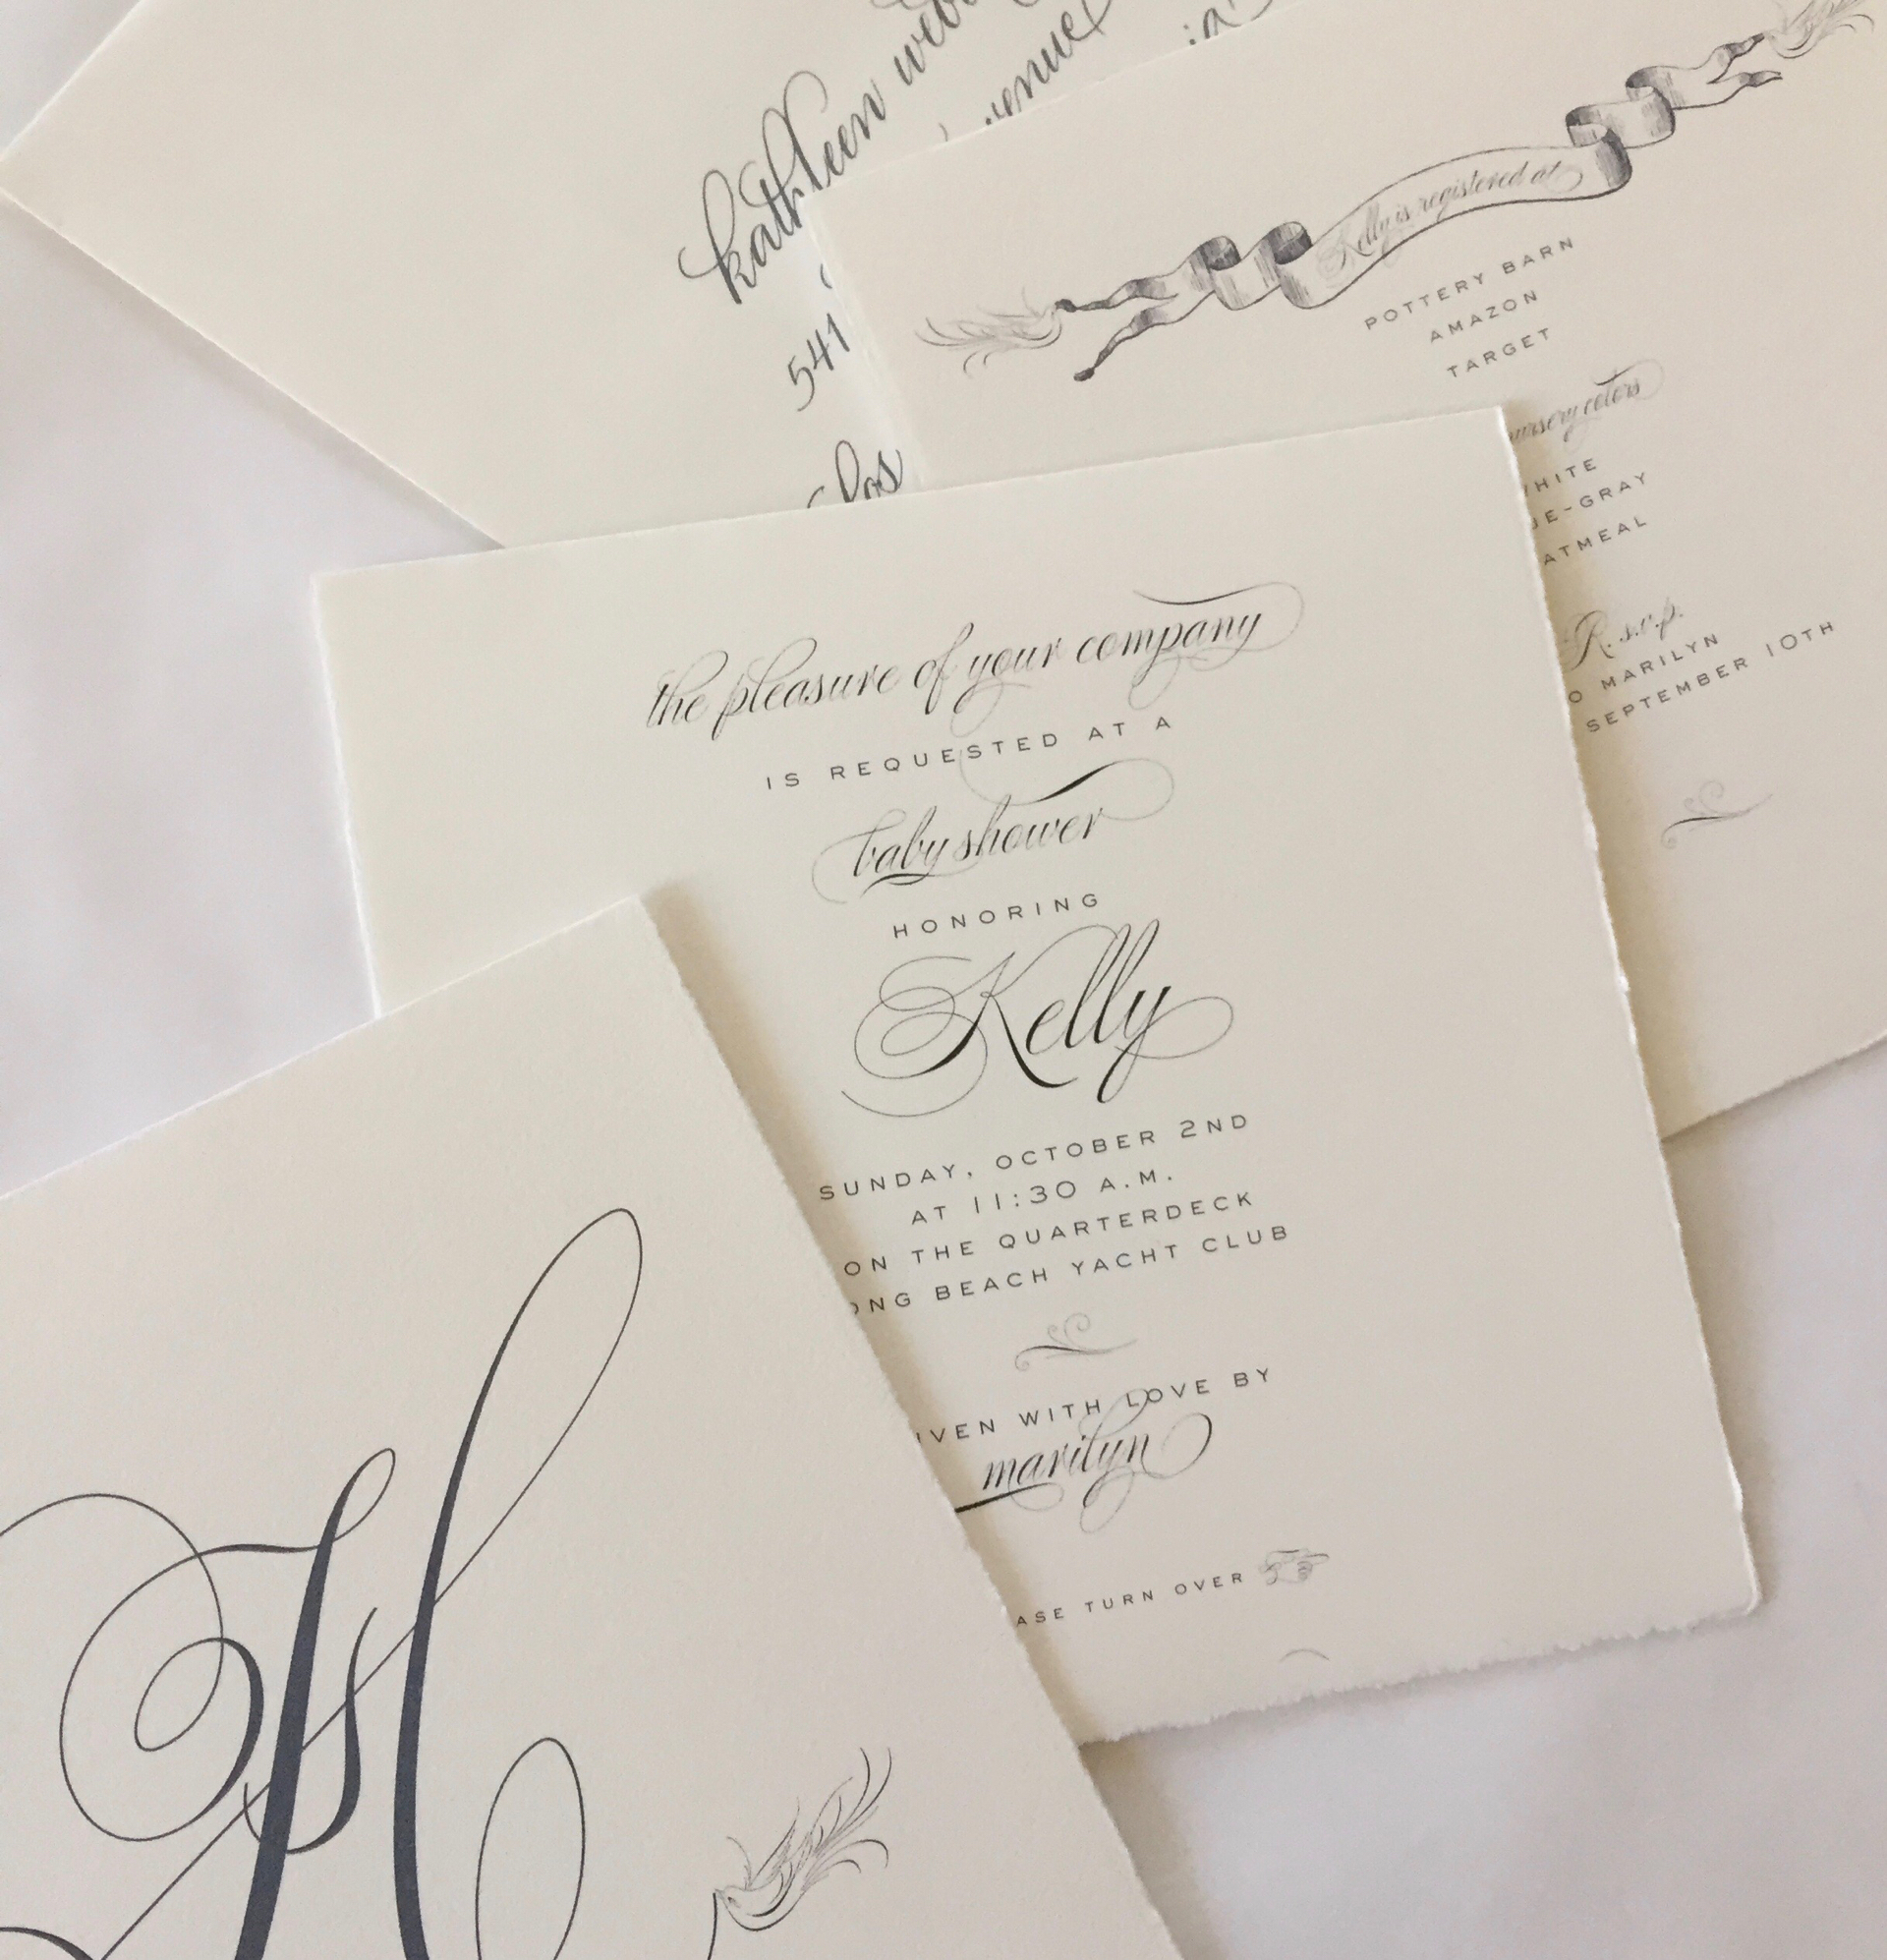 kathleen
541
Kelly is registered at
POTTERY BARN
AMAZON
TARGET
nursery colors
WHITE
E-GRAY
ATMEAL
R.s.v.p.
O MARILYN
SEPTEMBER 10TH
the pleasure of your company
IS REQUESTED AT A
baby shower
HONORING
Kelly
SUNDAY, OCTOBER 2ND
AT 11:30 A.M.
ON THE QUARTERDECK
ONG BEACH YACHT CLUB
IVEN WITH LOVE BY
marilyn
ASE TURN OVER
H